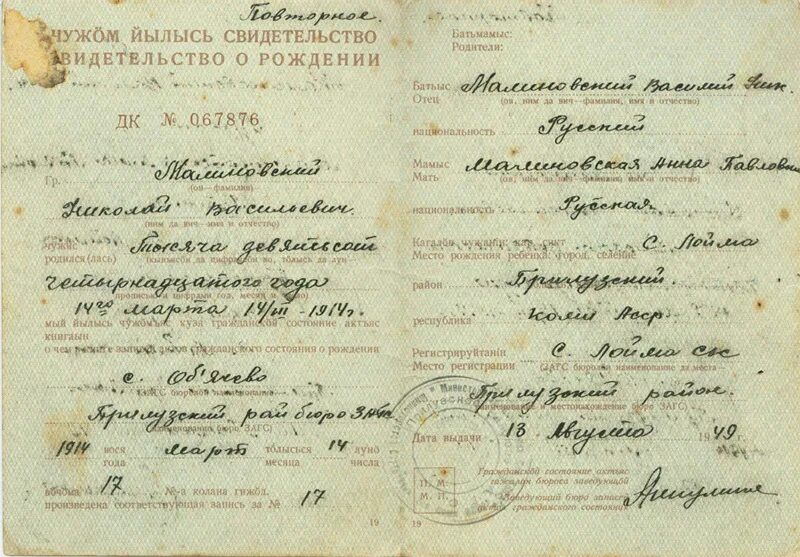 Повторное.
ЧУЖӦМ ЙЫЛЫСЬ СВИДЕТЕЛЬСТВО
СВИДЕТЕЛЬСТВО О РОЖДЕНИИ
ДК № 067876
Гр. Малиновский
(ов—фамилия)
Николай Васильевич.
(ним да вич—имя и отчество)
чужис Тысяча девятьсот
родился(лась)
четырнадцатого года
прописью и цифрами год, месяц и число
14го марта 14/III-1914г.
мый йылысь чужӧмъяс кузя гражданской состояние актъяс
книгаын
о чем в книге записей актов гражданского состояния о рождении
с. Объячево
Прилузский рай бюро ЗАГС
наименование бюро ЗАГС
1914 вося март тӧлысься 14 лунӧ
года месяца числа
вӧчӧма 17 №-а колана гижӧд.
произведена соответствующая запись за № 17
19
Батьмамыс:
Родители:
Батьыс Малиновский Василий Ник.
Отец (ов, ним да вич—фамилия, имя и отчество)
национальность Русский
Мамыс Малиновская Анна Павловна
Мать (ов, ним да вич—фамилия, имя и отчество)
национальность Русская
Кагалӧн чужанін: кар, сикт С. Лойма
Место рождения ребенка: город, селение
район Прилузский
республика Коми Асср
Регистрируйтанін С. Лойма с/с
Место регистрации (ЗАГС бюролӧн наименование да места—
Прилузский район.
наименование и местонахождение бюро ЗАГС)
Дата выдачи 13 Августа 1949
Гражданскӧй состояние актъяс
гижалан бюроӧн заведующӧй
П. М.
М. П.
Заведующий бюро записи
актов гражданского состояния
19